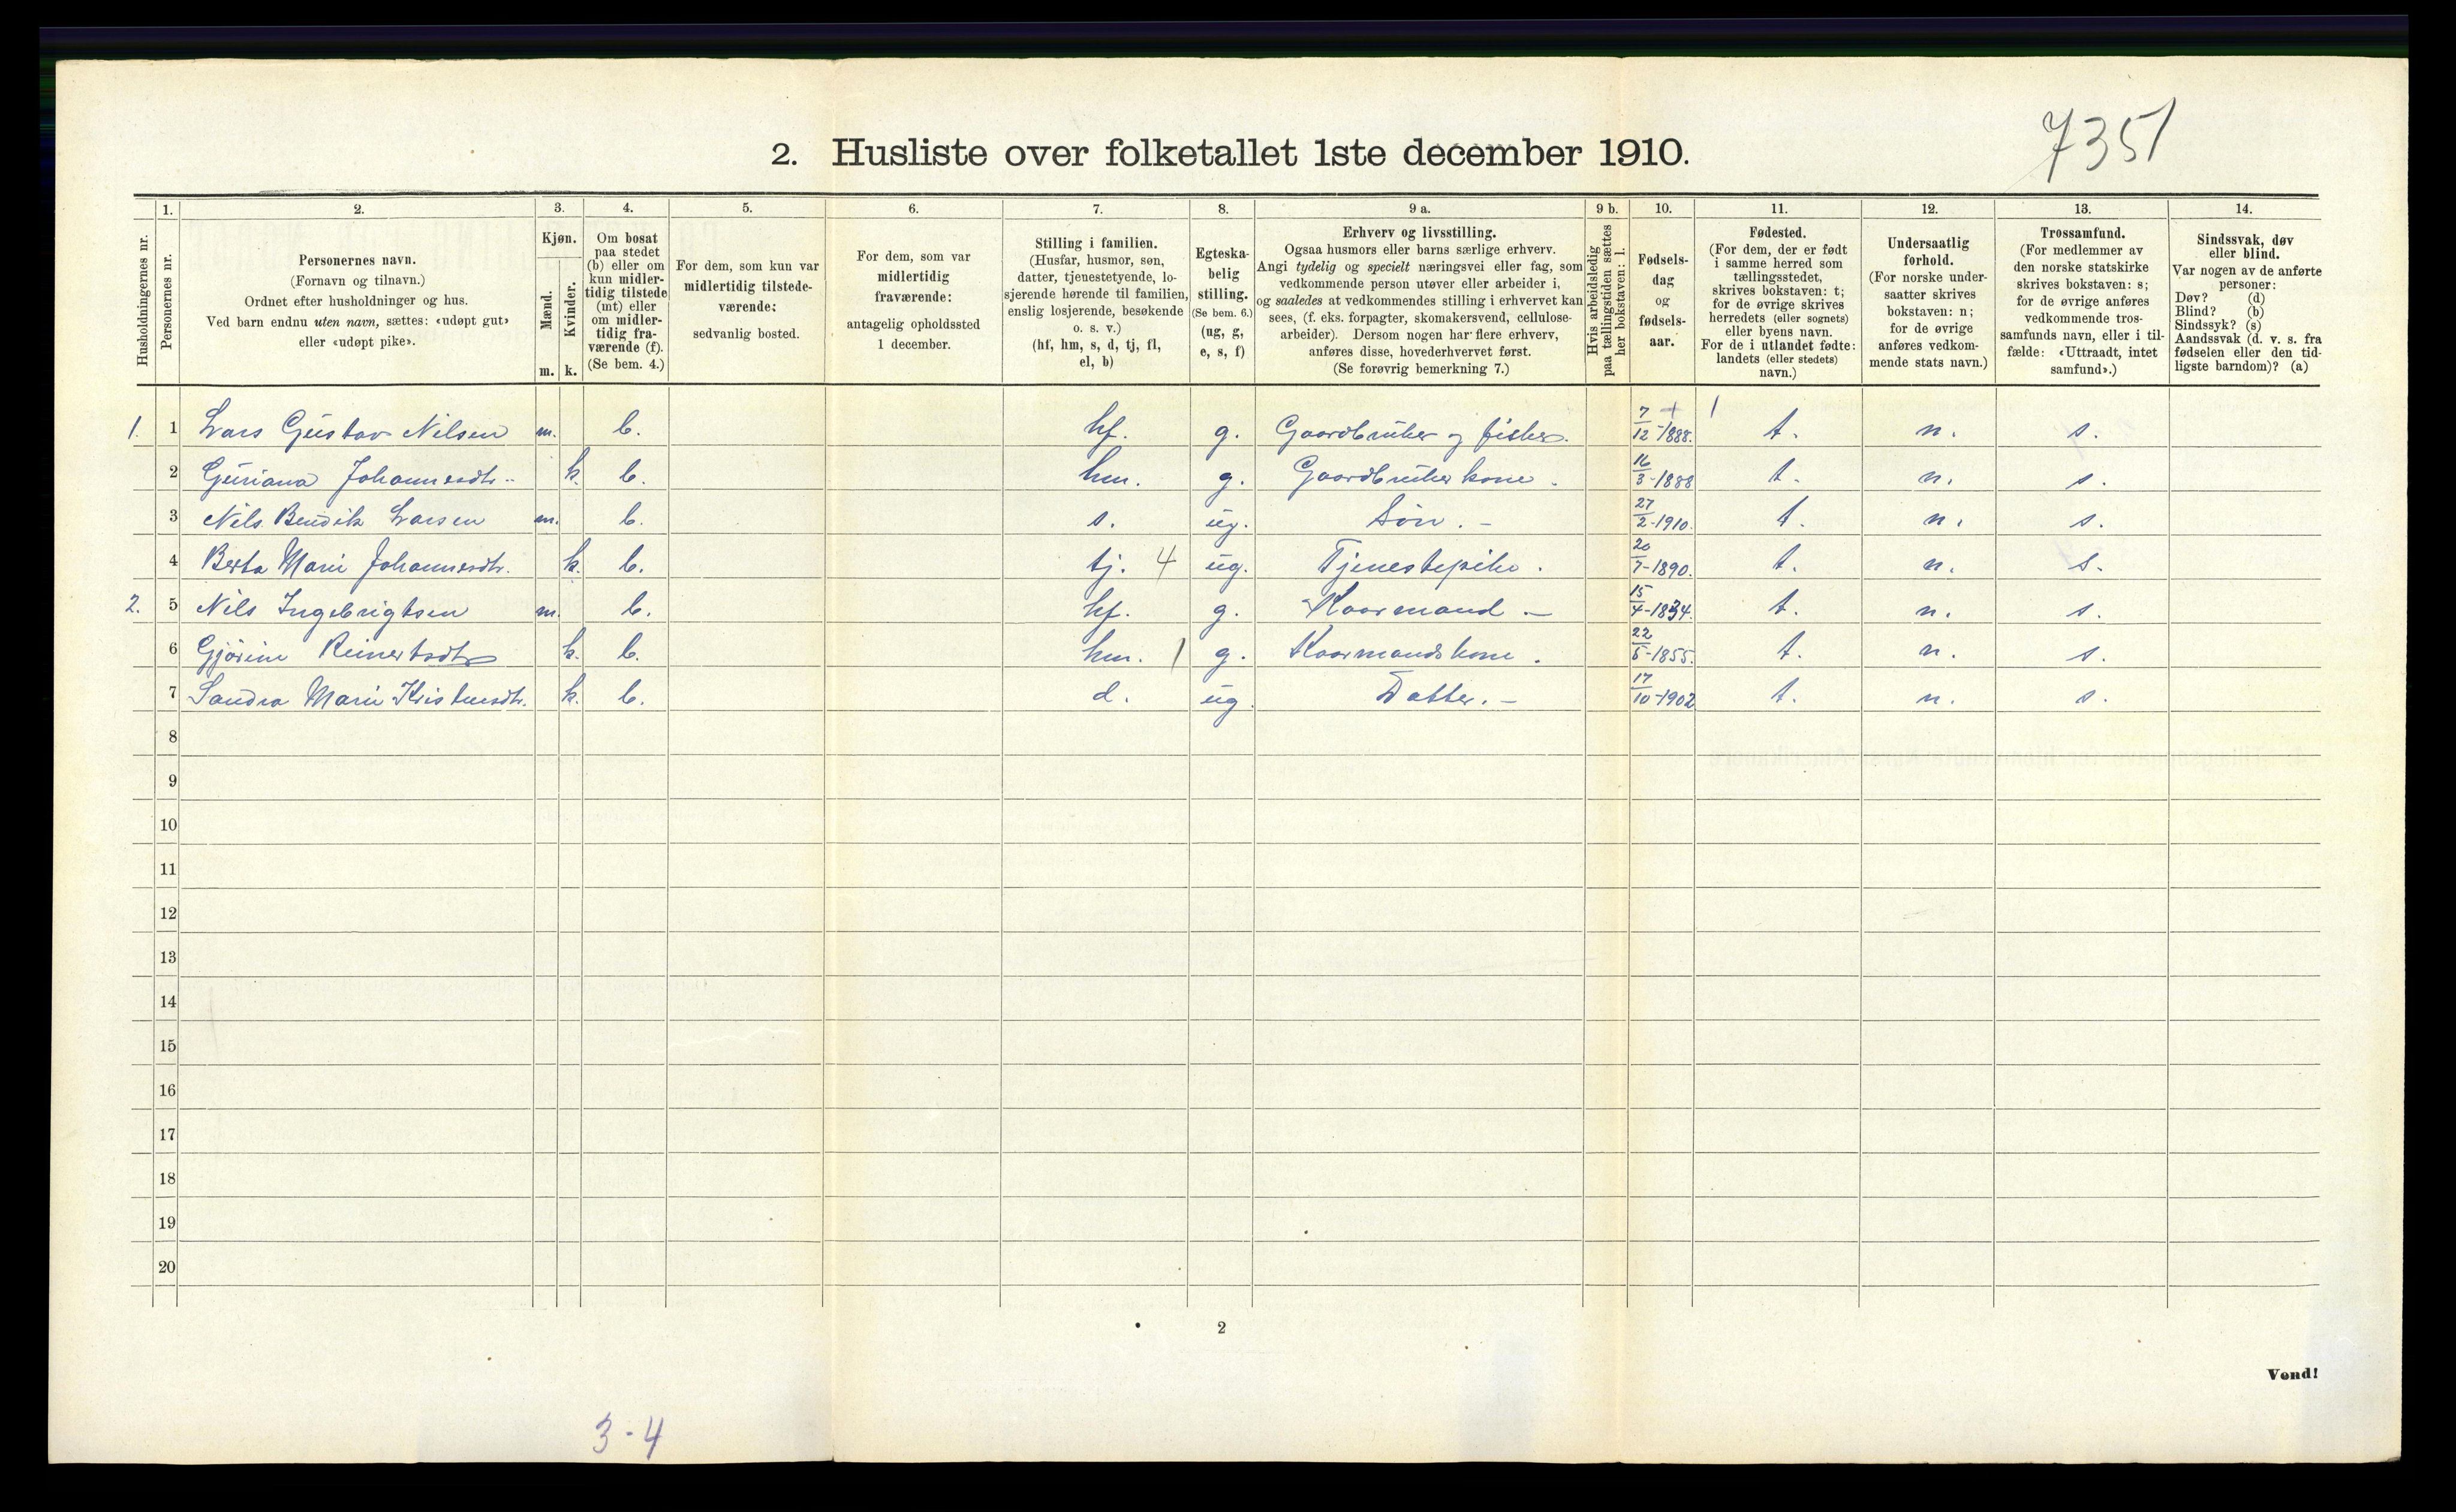 7351
2. Husliste over folketallet 1ste december 1910.
Husholdningernes nr.
1.
Personernes nr.
2.
Personernes navn.
(Fornavn og tilnavn.)
Ordnet efter husholdninger og hus.
Ved barn endnu uten navn, sættes: «udøpt gut»
eller «udøpt pike».
3.
Kjøn.
Mænd.
Kvinder.
m. k.
4.
Om bosat
paa stedet
(b) eller om
kun midler-
tidig tilstede
(mt) eller
om midler-
tidig fra-
værende (f).
(Se bem. 4.)
5.
For dem, som kun var
midlertidig tilstede-
værende:
sedvanlig bosted.
6.
For dem, som var
midlertidig
fraværende:
antagelig opholdssted
1 december.
7.
Stilling i familien.
(Husfar, husmor, søn,
datter, tjenestetyende, lo-
sjerende hørende til familien,
enslig losjerende, besøkende
o. s. v.)
(hf, hm, s, d, tj, fl,
el, b)
8.
Egteska-
belig
stilling.
(Se bem. 6.)
(ug, g,
e, s, f)
9 a.
Erhverv og livsstilling.
Ogsaa husmors eller barns særlige erhverv.
Angi tydelig og specielt næringsvei eller fag, som
vedkommende person utøver eller arbeider i,
og saaledes at vedkommendes stilling i erhvervet kan
sees, (f. eks. forpagter, skomakersvend, cellulose-
arbeider). Dersom nogen har flere erhverv,
anføres disse, hovederhvervet først.
(Se forøvrig bemerkning 7.)
9 b.
Hvis arbeidsledig
paa tællingstiden sættes
her bokstaven: l.
10.
Fødsels-
dag
og
fødsels-
aar.
11.
Fødested.
(For dem, der er født
i samme herred som
tællingsstedet,
skrives bokstaven: t;
for de øvrige skrives
herredets (eller sognets)
eller byens navn.
For de i utlandet fødte:
landets (eller stedets)
navn.)
12.
Undersaatlig
forhold.
(For norske under-
saatter skrives
bokstaven: n;
for de øvrige
anføres vedkom-
mende stats navn.)
13.
Trossamfund.
(For medlemmer av
den norske statskirke
skrives bokstaven: s;
for de øvrige anføres
vedkommende tros-
samfunds navn, eller i til-
fælde: «Uttraadt, intet
samfund».)
14.
Sindssvak, døv
eller blind.
Var nogen av de anførte
personer:
Døv? (d)
Blind? (b)
Sindssyk? (s)
Aandssvak (d. v. s. fra
fødselen eller den tid-
ligste barndom)? (a)
1. 1 Lars Gustav Nilsen m. b. hf. g. Gaardbruker og fisker. 7/12-1888. t. n. s.
2 Guriana Johannesdtr. k. b. hm. g. Gaardbrukerkone. 16/3-1888 t. n. s.
3 Nils Bendik Larsen m. b. s. ug. Søn. - 27/2-1910. t. n. s.
4 Berta Marie Johannesdtr. k. b. tj. 4 ug. Tjenestepike. 20/7-1890. t. n. s.
2. 5 Nils Ingebrigtsen m. b. hf. g. Kaarmand - 15/4-1834. t. n. s.
6 Gjørine Reinertsdtr k. b. hm. 1 g. Kaarmandskone. 22/5-1855. t. n. s.
7 Sandra Marie Kristensdtr. k. b. d. ug. Datter. - 17/10-1902 t. n. s.
8
9
10
11
12
13
14
15
16
17
18
19
20
2
Vend!
3-4